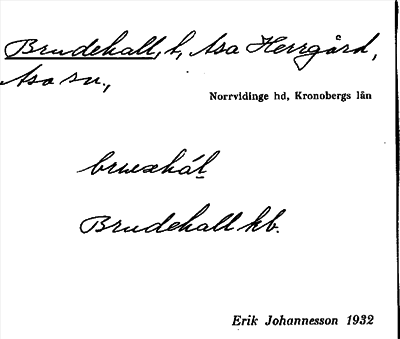 Brudehall, l, Asa Herrgård,
Asa sn.,
Norrvidinge hd, Kronobergs län
Brudehall kb.
Erik Johannesson 1932